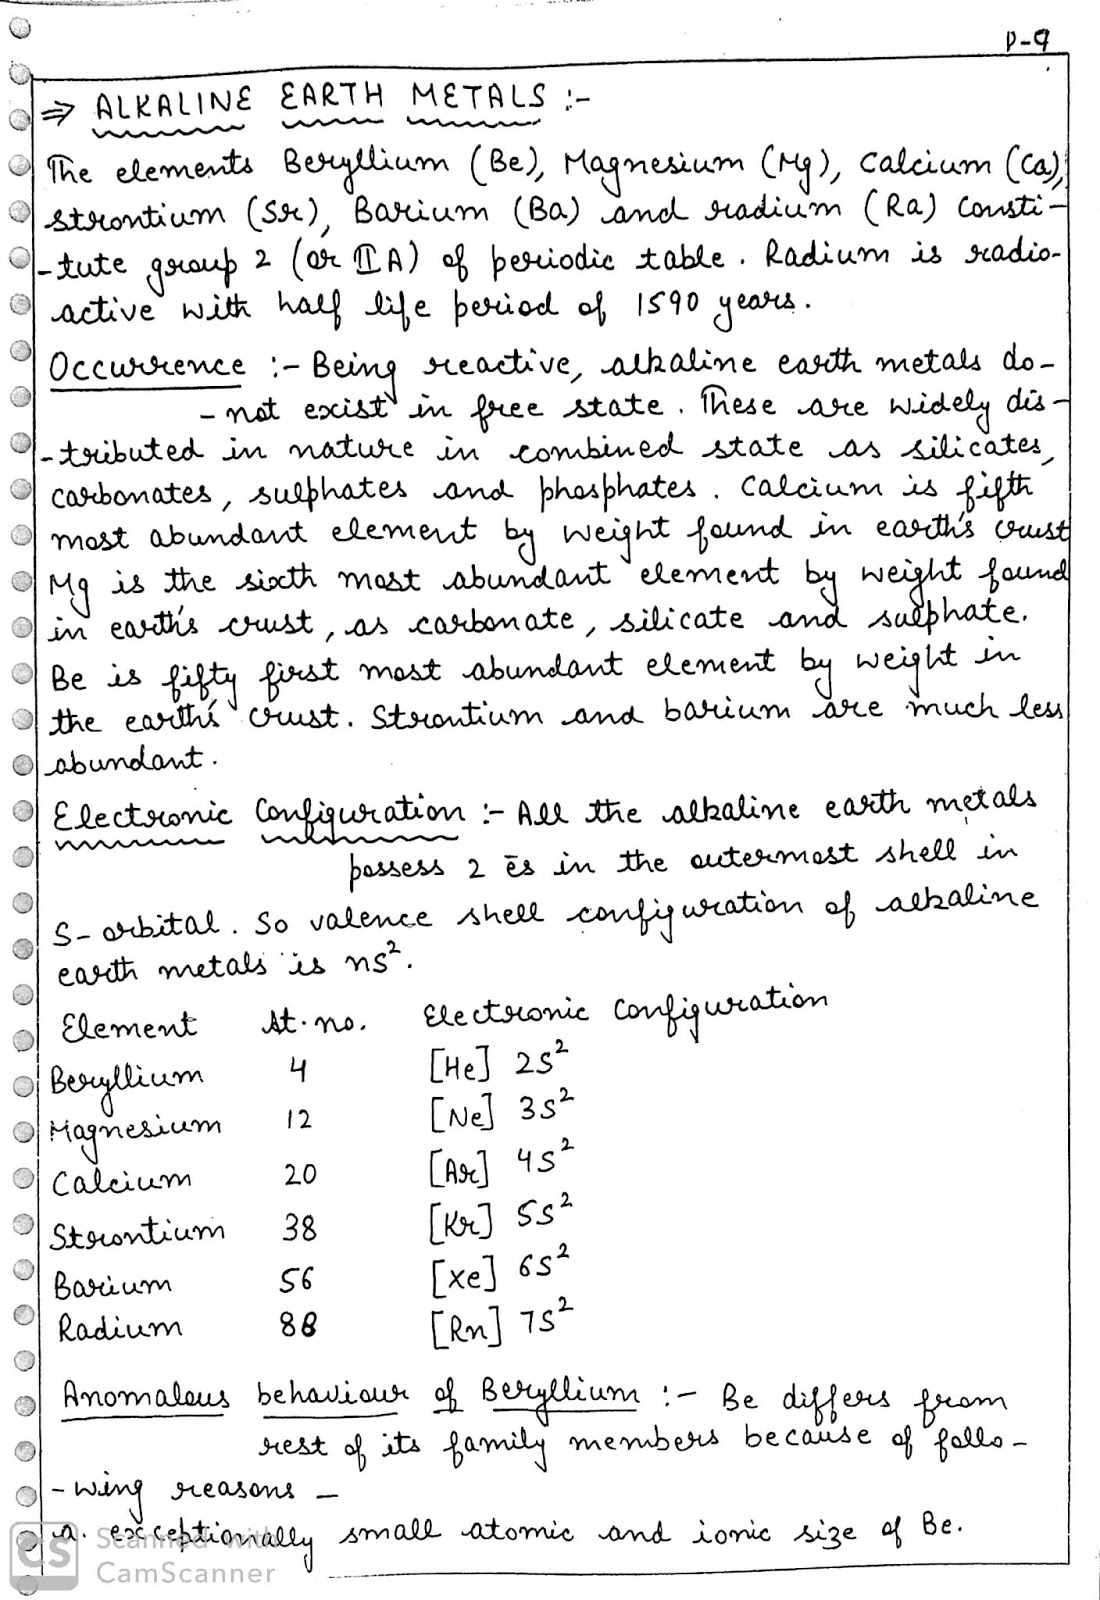 P-9
⇒ ALKALINE EARTH METALS :-
The elements Beryllium (Be), Magnesium (Mg), Calcium (Ca),
Strontium (Sr), Barium (Ba) and radium (Ra) Consti-
-tute group 2 (or II A) of periodic table. Radium is radio-
active with half life period of 1590 years.
Occurrence :- Being reactive, alkaline earth metals do-
-not exist in free state. These are widely dis-
-tributed in nature in combined state as silicates,
carbonates, sulphates and phosphates. Calcium is fifth
most abundant element by weight found in earth's crust
Mg is the sixth most abundant element by weight found
in earth's crust, as carbonate, silicate and sulphate.
Be is fifty first most abundant element by weight in
the earth's crust. Strontium and barium are much less
abundant.
Electronic Configuration :- All the alkaline earth metals
possess 2 ēs in the outermost shell in
S-orbital. So valence shell configuration of alkaline
earth metals is nS².
Element At. no. Electronic Configuration
Beryllium 4 [He] 2S²
Magnesium 12 [Ne] 3S²
Calcium 20 [Ar] 4S²
Strontium 38 [Kr] 5S²
Barium 56 [Xe] 6S²
Radium 88 [Rn] 7S²
Anomalous behaviour of Beryllium :- Be differs from
rest of its family members because of follo-
-wing reasons -
a. exceptionally small atomic and ionic size of Be.
CS Scanned with
CamScanner